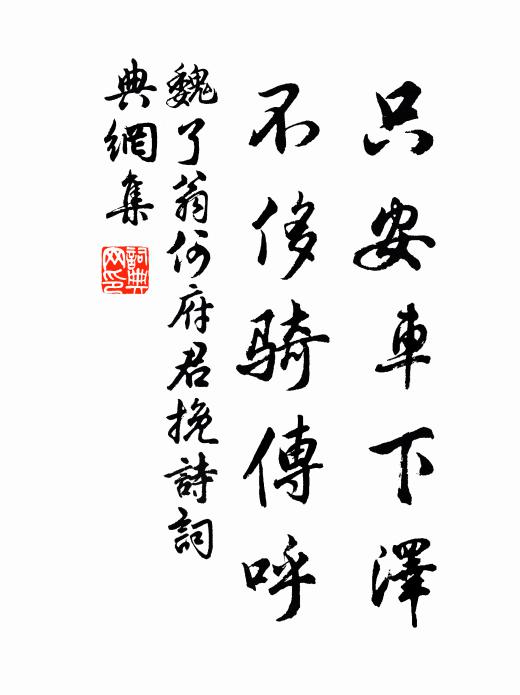 只安車下澤
不侈騎傳呼
魏了翁何府君挽詩詞
典網集
詞典網印